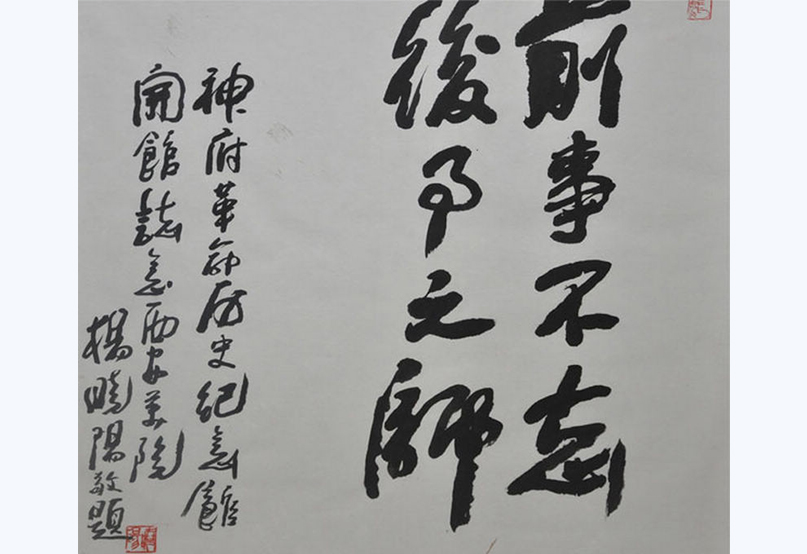 前事不忘
後事之師
神府革命历史纪念館
開館誌念西安美院
楊曉陽敬題